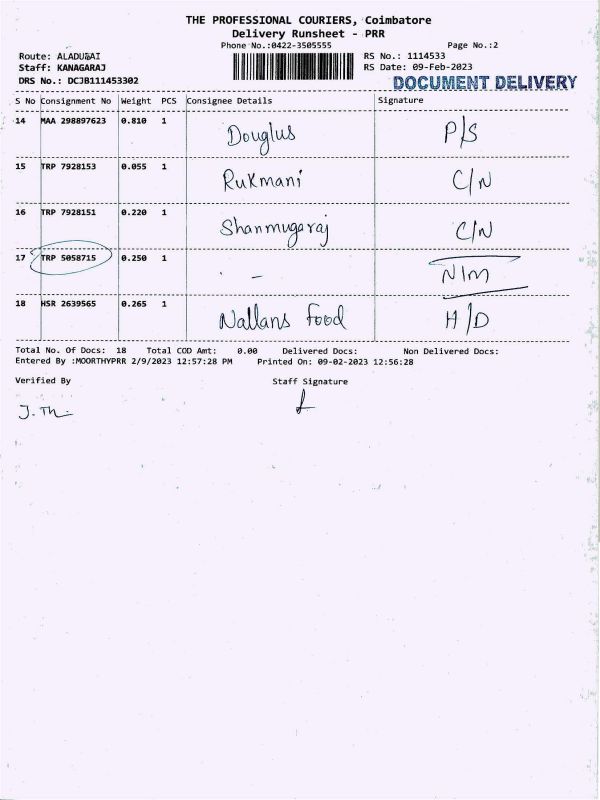 THE PROFESSIONAL COURIERS, Coimbatore
Delivery Runsheet - PRR
Phone No.:0422-3505555 Page No.:2
Route: ALADUGAI RS No.: 1114533
Staff: KANAGARAJ RS Date: 09-Feb-2023
DRS No.: DCJB111453302 DOCUMENT DELIVERY
S No Consignment No Weight PCS Consignee Details Signature
14 MAA 298897623 0.810 1 Douglus P/S
15 TRP 7928153 0.055 1 Rukmani C/N
16 TRP 7928151 0.220 1 Shanmugaraj C/N
17 TRP 5058715 0.250 1 - N/M
18 HSR 2639565 0.265 1 Nallans Food H/D
Total No. Of Docs: 18 Total COD Amt: 0.00 Delivered Docs: Non Delivered Docs:
Entered By :MOORTHYPRR 2/9/2023 12:57:28 PM Printed On: 09-02-2023 12:56:28
Verified By Staff Signature
J. Th.